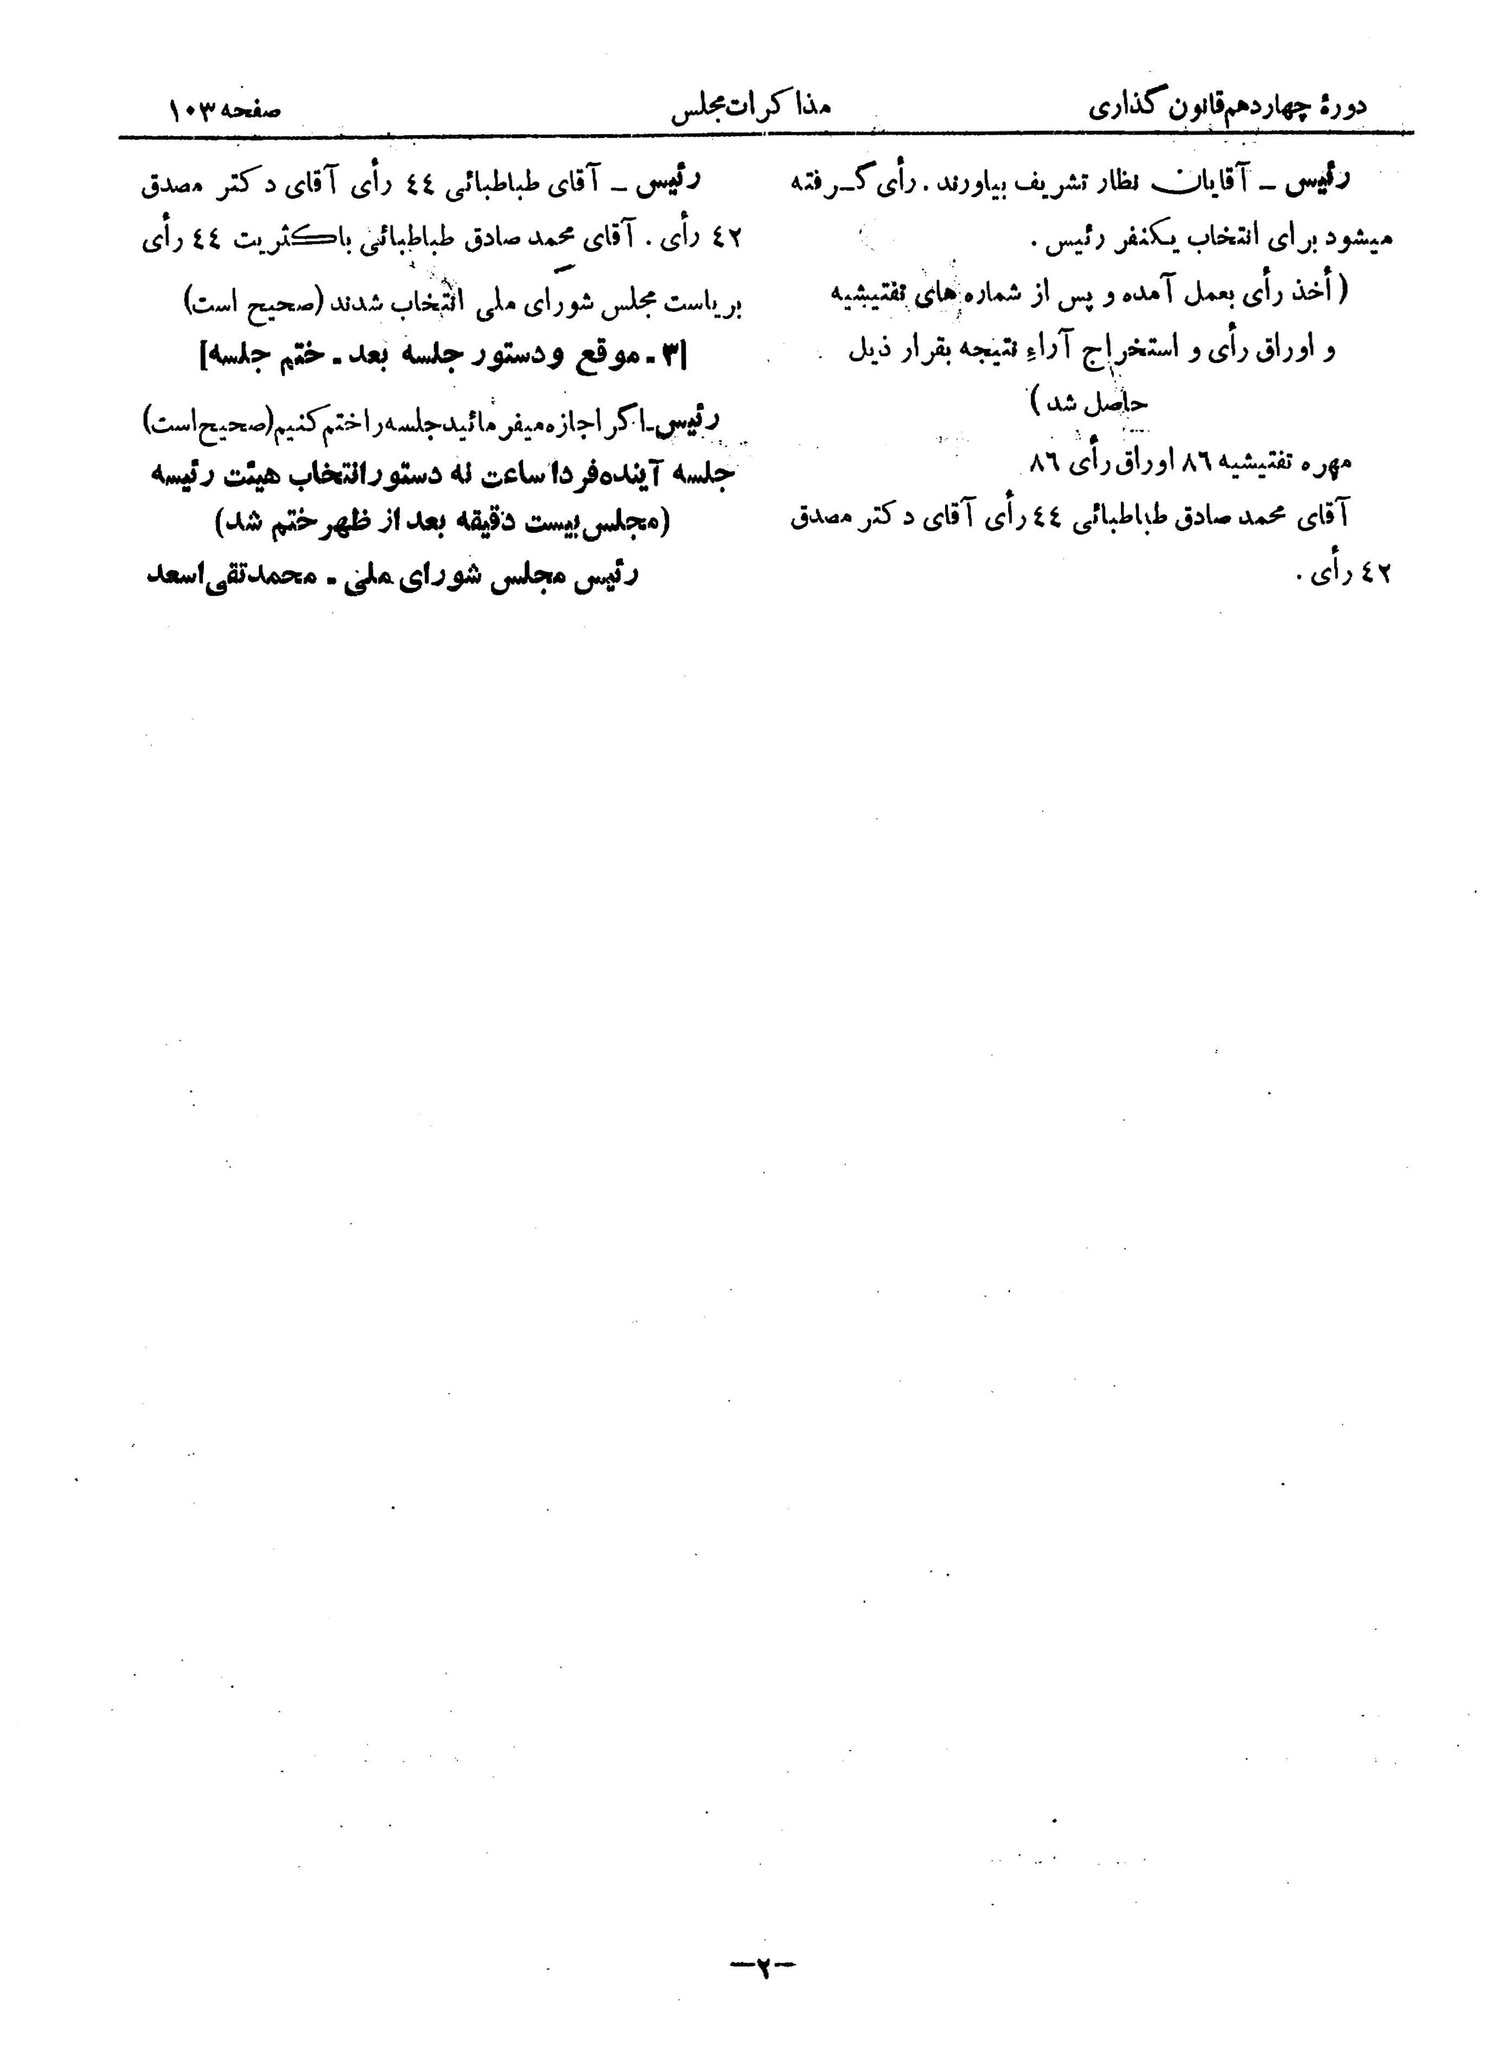 دورهٔ چهاردهم قانون گذاری
مذاکرات مجلس
صفحه ۱۰۳
رئیس ـ آقایان نظار تشریف بیاورند . رأی گرفته
میشود برای انتخاب یکنفر رئیس .
( أخذ رأی بعمل آمده و پس از شماره های تفتیشیه
و اوراق رأی و استخراج آراء نتیجه بقرار ذیل
حاصل شد )
مهره تفتیشیه ۸٦ اوراق رأی ۸٦
آقای محمد صادق طباطبائی ٤٤ رأی آقای دکتر مصدق
٤۲ رأی .
رئیس ـ آقای طباطبائی ٤٤ رأی آقای دکتر مصدق
٤۲ رأی . آقای محمد صادق طباطبائی باکثریت ٤٤ رأی
بریاست مجلس شورای ملی انتخاب شدند (صحیح است)
[۳ ـ موقع و دستور جلسه بعد ـ ختم جلسه]
رئیس ـ اگر اجازه میفرمائید جلسه را ختم کنیم (صحیح است)
جلسه آینده فردا ساعت نه دستور انتخاب هیئت رئیسه
(مجلس بیست دقیقه بعد از ظهر ختم شد)
رئیس مجلس شورای ملی ـ محمد تقی اسعد
ـ۲ـ